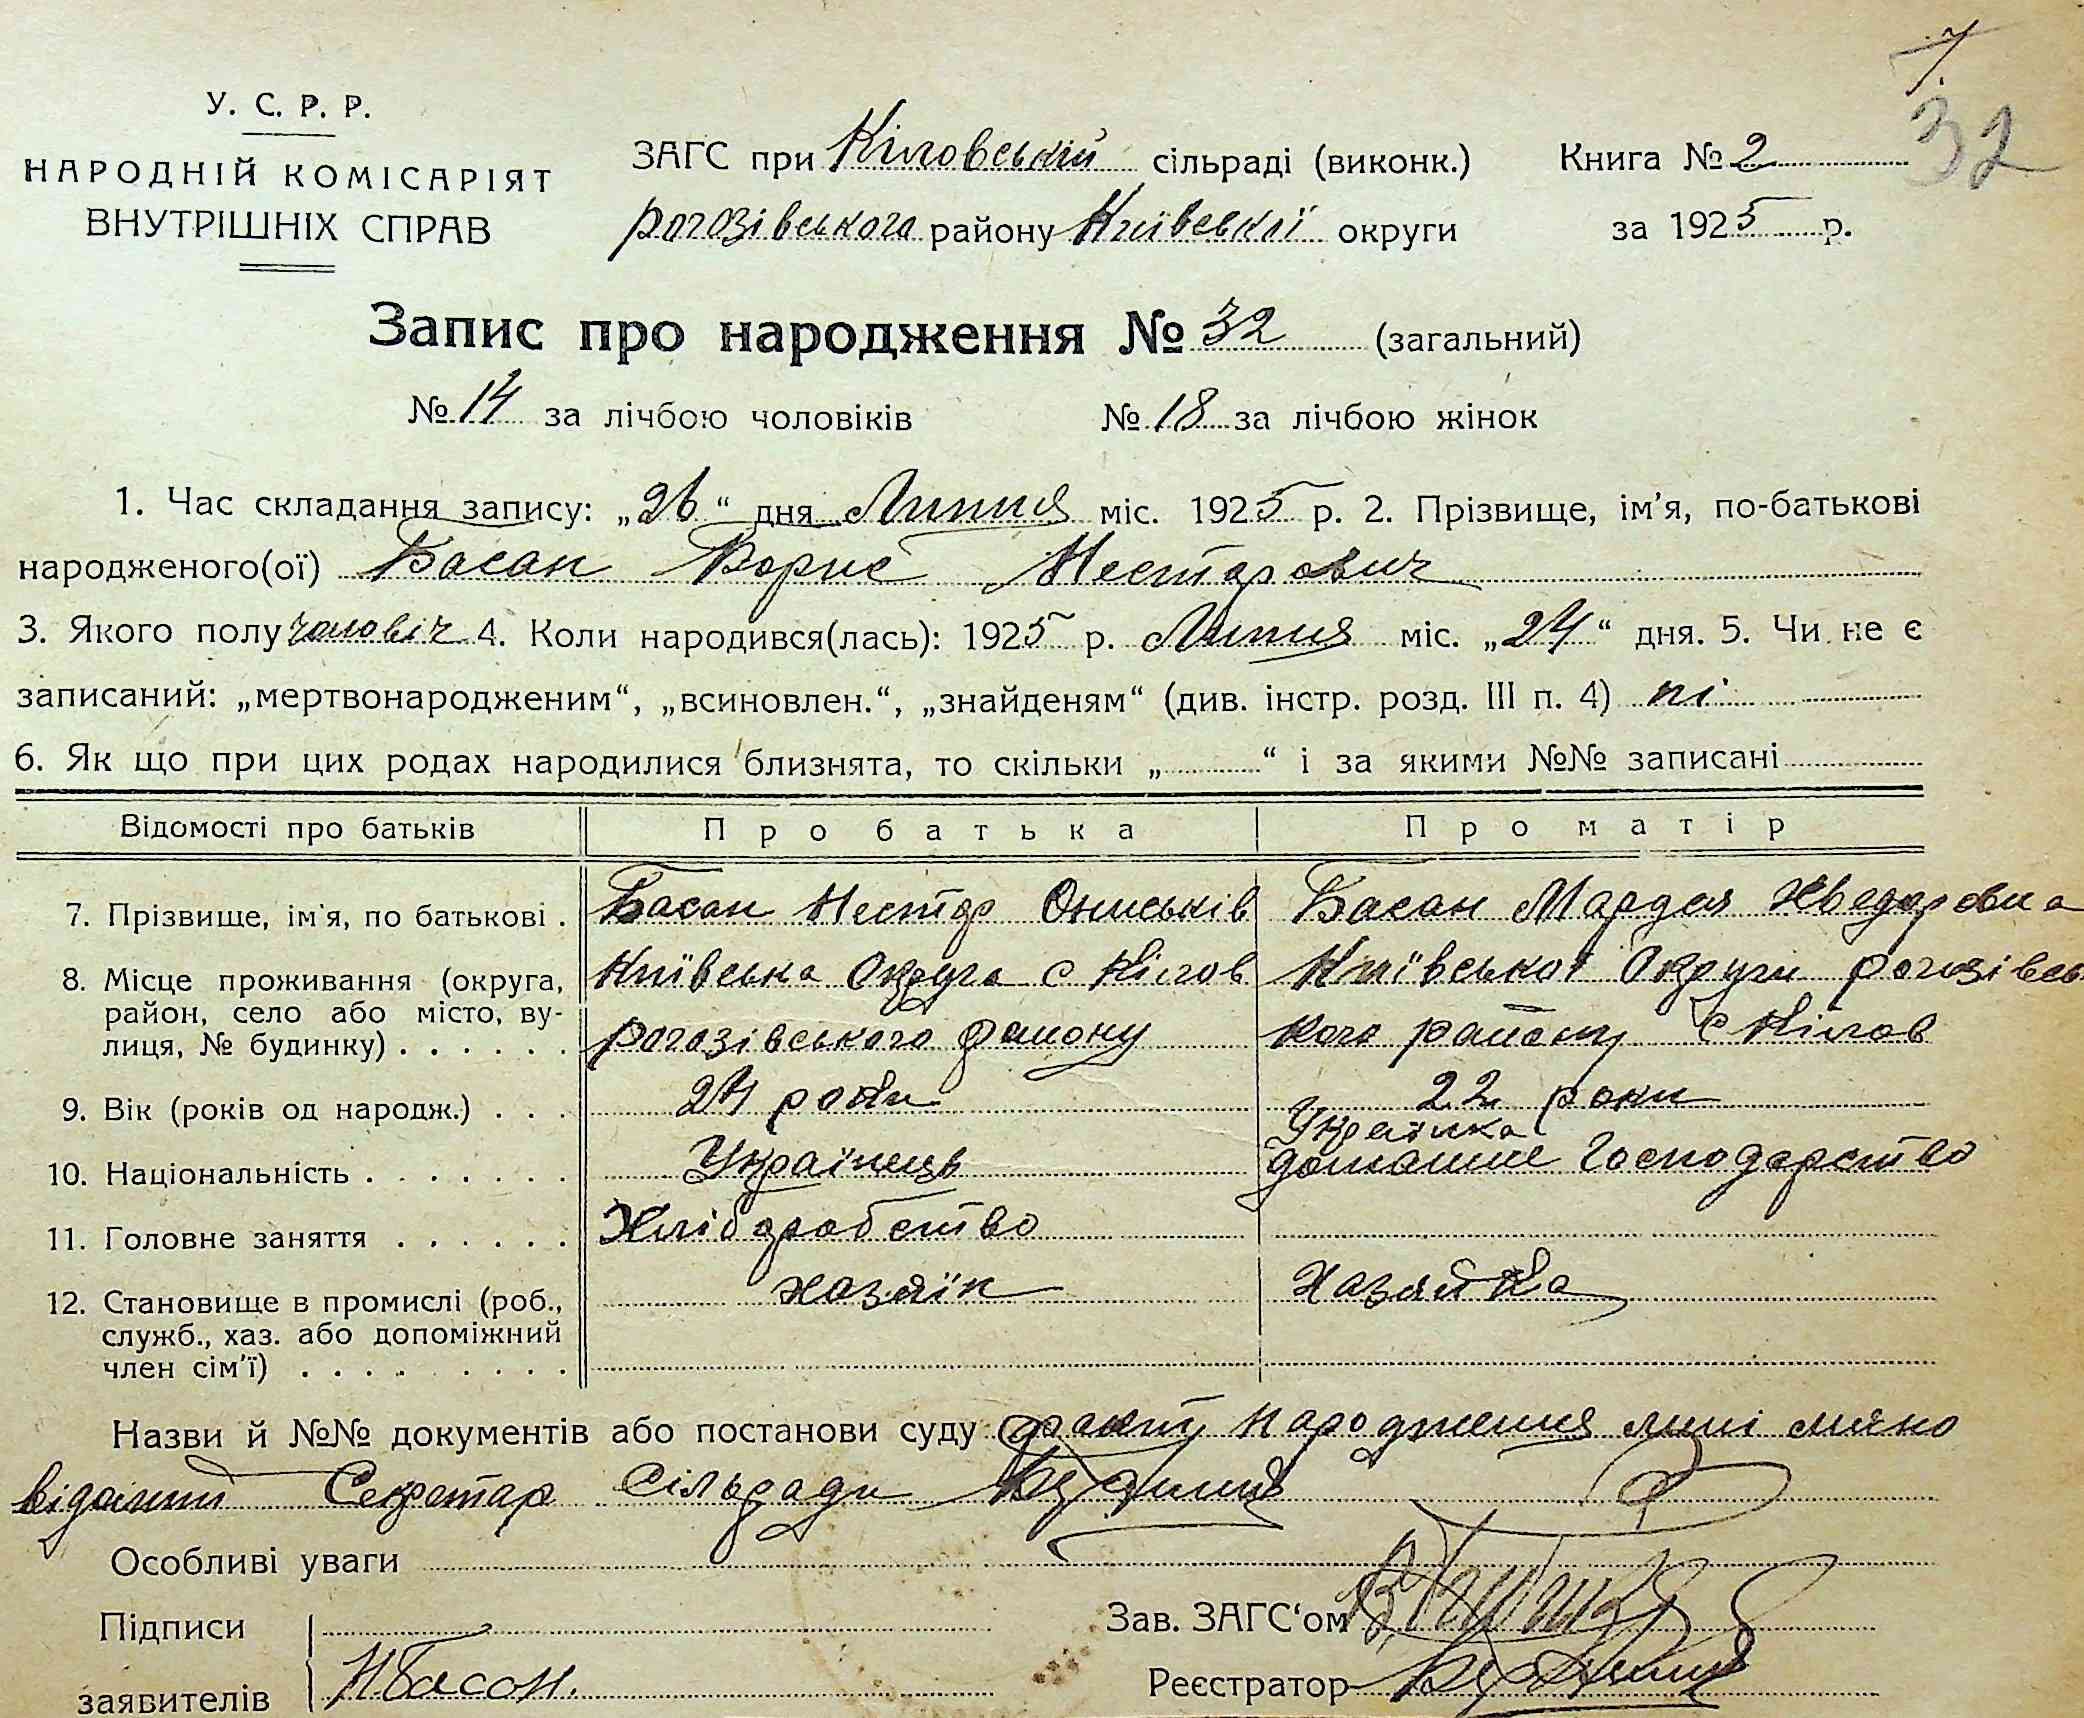 7.
32
У. С. Р. Р.
НАРОДНІЙ КОМІСАРІЯТ
ВНУТРІШНІХ СПРАВ
ЗАГС при Кіловській сільраді (виконк.) Книга № 2
рогозівського району Київської округи за 1925 р.
Запис про народження № 32 (загальний)
№ 14 за лічбою чоловіків № 18 за лічбою жінок
1. Час складання запису: „26“ дня Липня міс. 1925 р. 2. Прізвище, ім’я, по-батькові
народженого(ої) Басан Борис Несторович
3. Якого полу чоловіч 4. Коли народився(лась): 1925 р. Липня міс. „24“ дня. 5. Чи не є
записаний: „мертвонародженим“, „всиновлен.“, „знайденям“ (див. інстр. розд. III п. 4) ні
6. Як що при цих родах народилися близнята, то скільки „ “ і за якими №№ записані
Відомості про батьків Про батька Про матір
7. Прізвище, ім’я, по батькові . Басан Нестор Ониськів Басан Мардя Хведоровна
8. Місце проживання (округа, Київська Округа с Кілов Київської Округи рогозівсь
район, село або місто, ву- рогозівського району кого району с Кілов
лиця, № будинку) . . . . . .
9. Вік (років од народж.) . . . 24 роки 22 роки
Українка
10. Національність . . . . . . . Українець домашне Господарство
11. Головне заняття . . . . . . Хліборобство
12. Становище в промислі (роб., хазяїн Хазяйка
служб., хаз. або допоміжний
член сім’ї) . . . . . . . . .
Назви й №№ документів або постанови суду факт народження мині
відомий Секретар Сільради
Особливі уваги
Підписи Зав. ЗАГС‘ом
заявителів Н Басан. Реєстратор